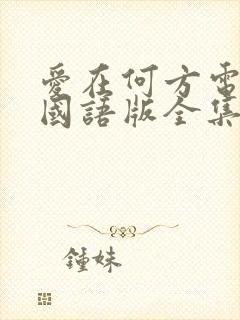 愛在何方電
國語版全集
鍾妹